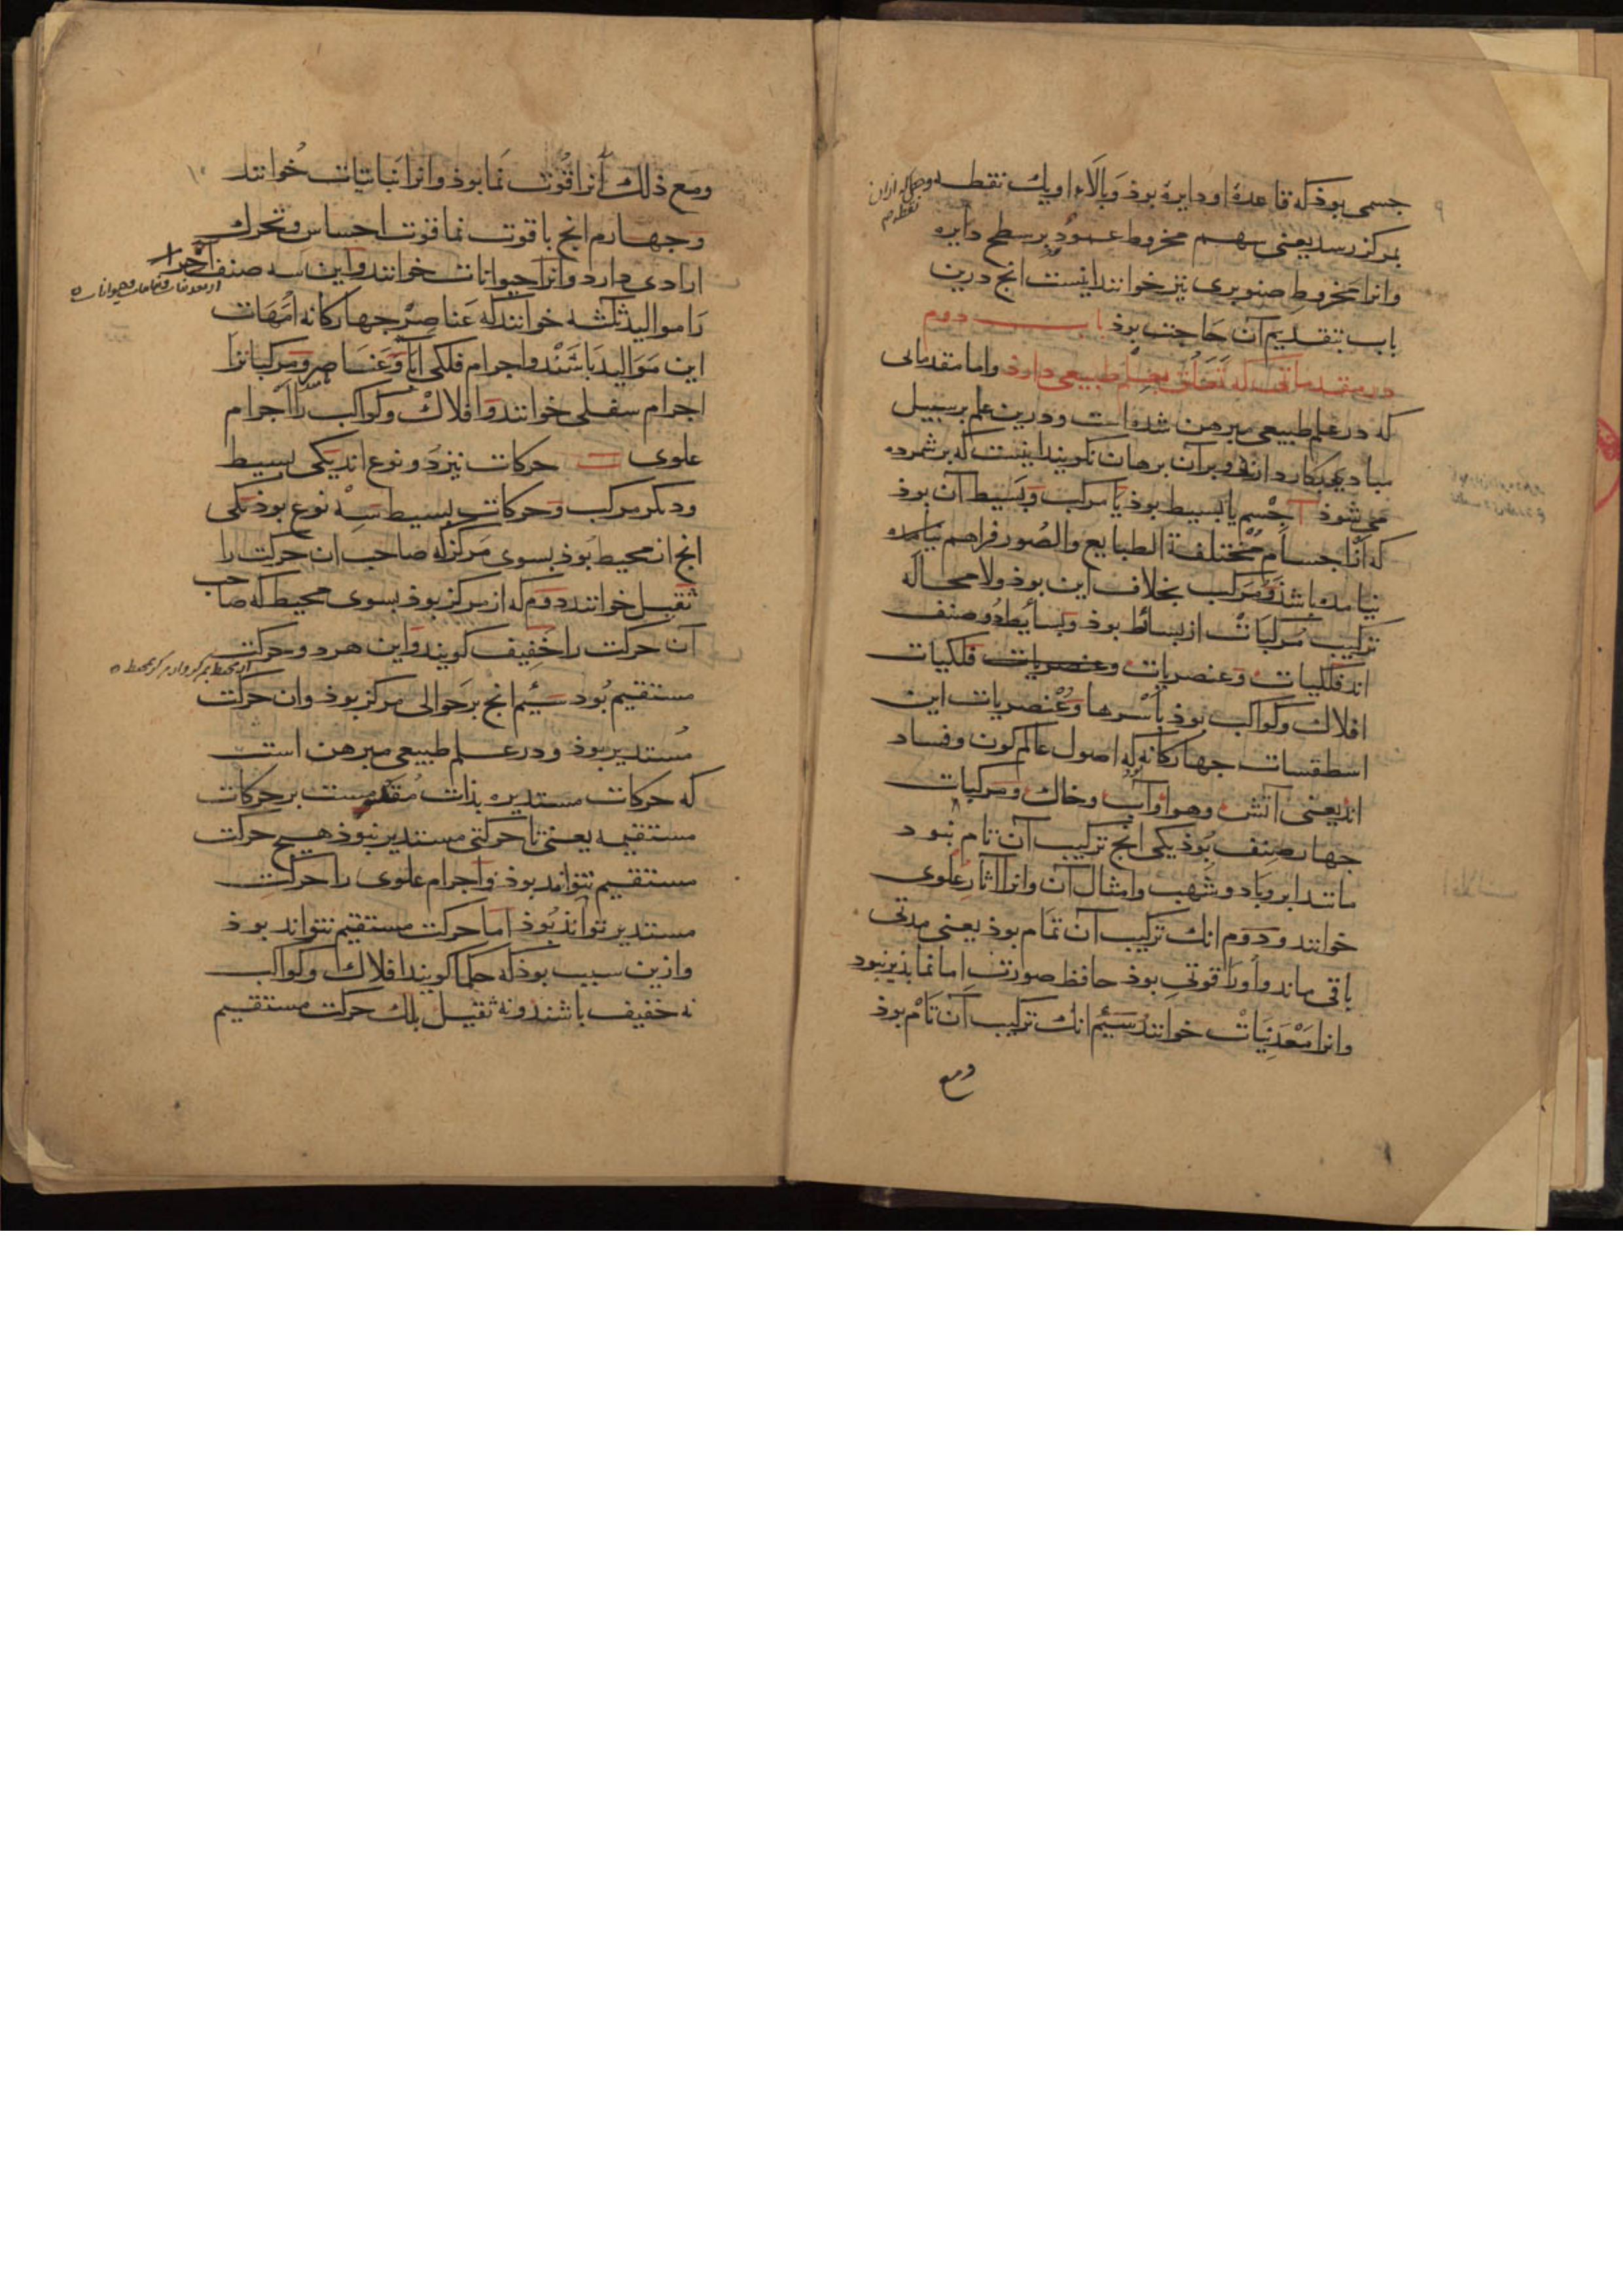 ۹
جسمی بوذ که قاعدۀ او دایرۀ بوذ و بالاء او یک نقطه و چون از ان نقطه
بمرکز رسد یعنی سهم مخروط عمود بر سطح دایره
وانرا مخروط صنوبری نیز خوانند اینست انج درین
باب بتقدیم آن حاجت بوذ باب دوم
در مقدماتی که تعلق بعلم طبیعی دارد واما مقدماتی
که در علم طبیعی مبرهن شده است و درین علم بر سبیل
مبادی بکار دارند و بر آن برهان نکویند اینست که بر شمرده
می شوذ آ جسم یا بسیط بوذ یا مرکب و بسیط آن بوذ
که از اجسام مختلفة الطبایع والصور فراهم نیامده
باشذ و مرکب بخلاف این بوذ ولا محاله
ترکیب مرکبات از بسائط بوذ و بسائط دو صنف
اند فلکیات و عنصریات فلکیات
افلاک و کواکب بوذ باسرها و عنصریات این
اسطقسات جهارکانه که اصول عالم کون و فساد
اند یعنی اتش و هوا و آب و خاک و مرکبات
جهار صنف بوذ یکی انج ترکیب آن تام نبود
مانند ابر و باد و شهب و امثال آن وانرا اثار علوی
خوانند و دوم انک ترکیب آن تمام بوذ یعنی مدتی
باقی ماند و اورا قوتی بوذ حافظ صورت اما نما بذیر نبود
وانرا معدنیات خوانند سیم انک ترکیب آن تام بوذ
ومع
۱۰
ومع ذلک آنرا قوت نما بوذ وانرا نباتیات خوانند
و جهارم انج با قوت نما قوت احساس و تحرک
ارادی دارد وانرا حیوانات خوانند و این سه صنف آخر را
از معدنیات و نباتات و حیوانات
را موالید ثلثه خوانند که عناصر جهارکانه امهات
این موالید باشند و اجرام فلکی آبا و عناصر و مرکبات را
اجرام سفلی خوانند و افلاک و کواکب را اجرام
علوی ب حرکات نیز دو نوع اند یکی بسیط
و دکر مرکب و حرکات بسیط سه نوع بوذ یکی
انج از محیط بوذ بسوی مرکز که صاحب ان حرکت را
ثقیل خوانند دوم که از مرکز بوذ بسوی محیط که صاحب
آن حرکت را خفیف کویند و این هر دو حرکت
از محیط بمرکز و از مرکز بمحیط
مستقیم بود سیم انج بر حوالی مرکز بوذ وان حرکت
مستدیر بوذ و در علم طبیعی مبرهن است
که حرکات مستدیره بذات مقدمست بر حرکات
مستقیمه یعنی تا حرکتی مستدیر نبوذ هیچ حرکت
مستقیم نتواند بوذ و اجرام علوی را حرکت
مستدیر تواند بوذ اما حرکت مستقیم نتواند بوذ
و ازین سبب بوذ که حکما کویند افلاک و کواکب
نه خفیف باشند و نه ثقیل بلک حرکت مستقیم